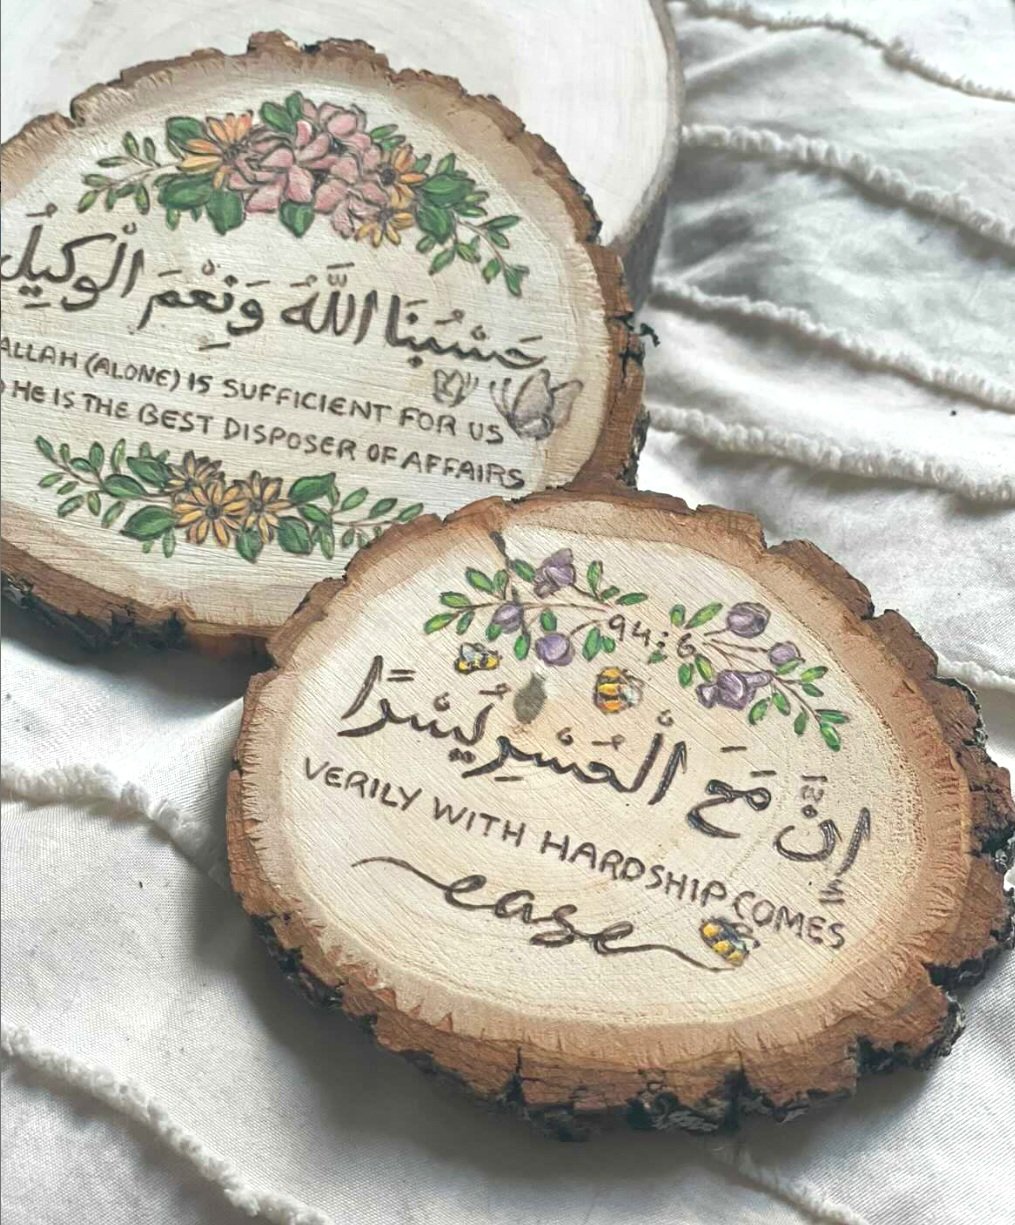 حَسْبُنَا اللَّهُ وَنِعْمَ الْوَكِيلُ
ALLAH (ALONE) IS SUFFICIENT FOR US
HE IS THE BEST DISPOSER OF AFFAIRS
94:6
إِنَّ مَعَ الْعُسْرِ يُسْرًا
VERILY WITH HARDSHIP COMES
ease